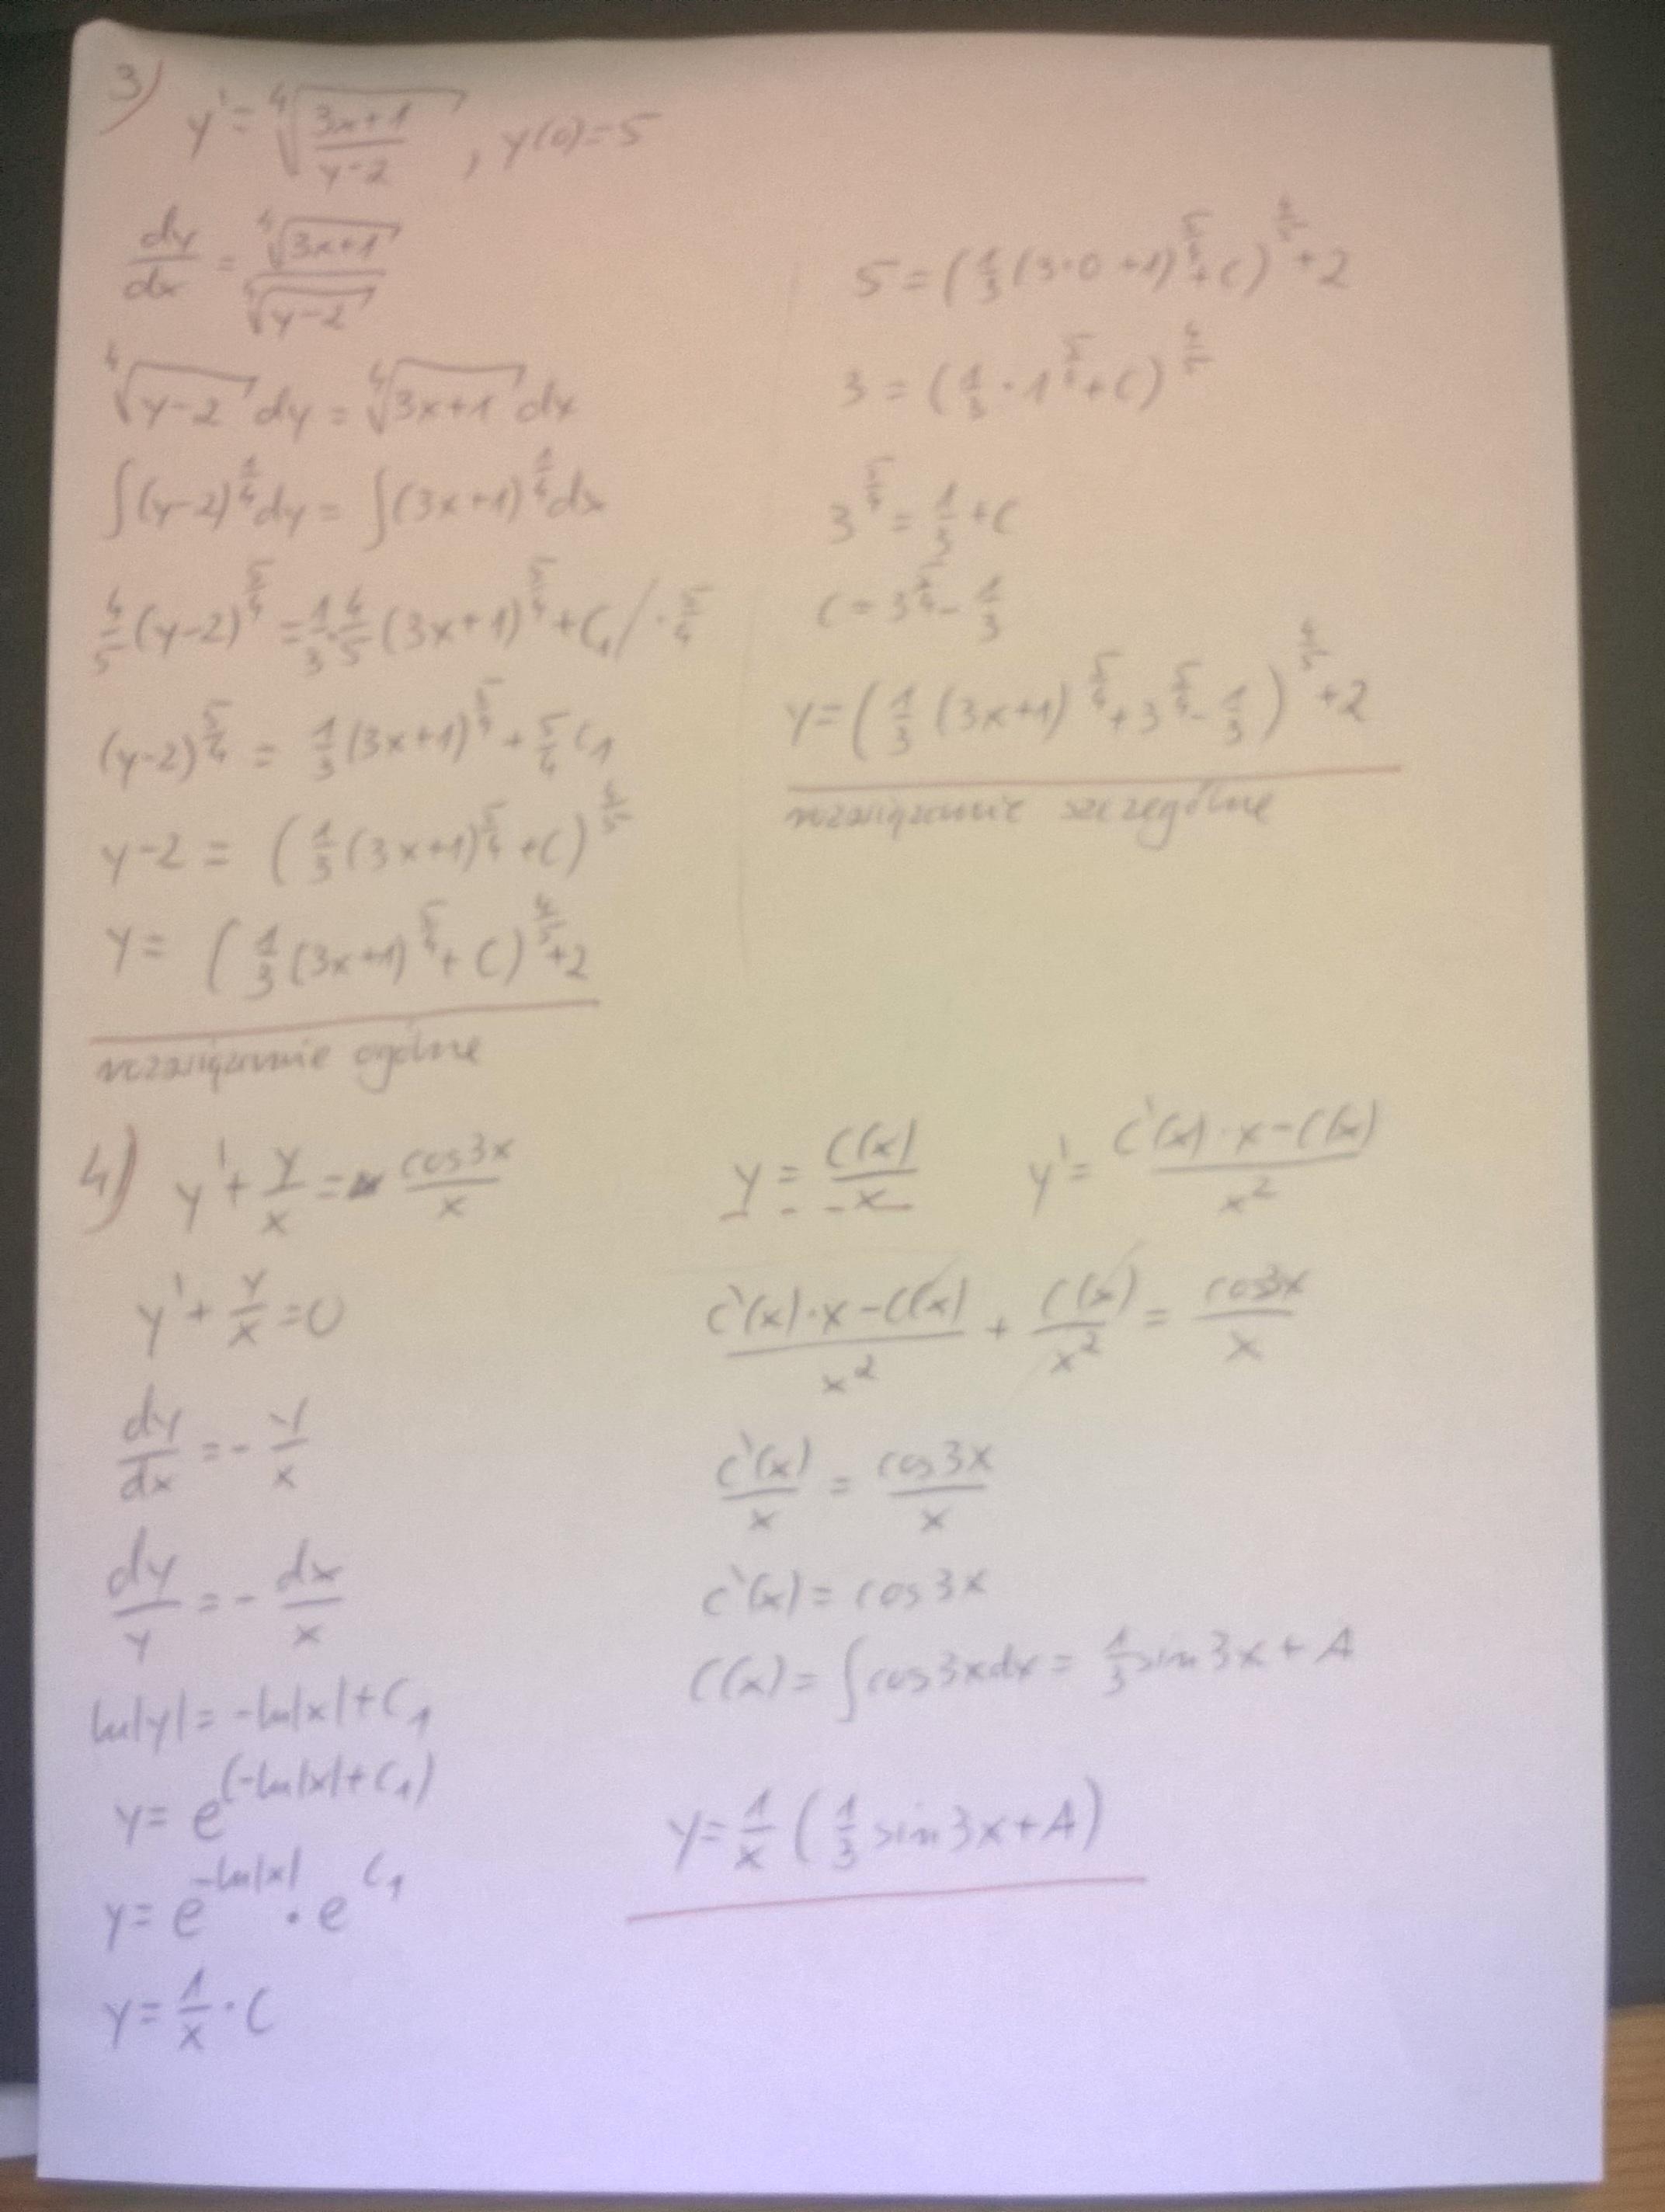 3)
y' = ⁴√((3x+1)/(y-2)), y(0)=5
dy/dx = ⁴√(3x+1)/⁴√(y-2)
⁴√(y-2) dy = ⁴√(3x+1) dx
∫(y-2)^(1/4) dy = ∫(3x+1)^(1/4) dx
4/5 (y-2)^(5/4) = 1/3 · 4/5 (3x+1)^(5/4) + C₁ / · 5/4
(y-2)^(5/4) = 1/3 (3x+1)^(5/4) + 5/4 C₁
y-2 = (1/3 (3x+1)^(5/4) + C)^(4/5)
y = (1/3 (3x+1)^(5/4) + C)^(4/5) + 2
rozwiązanie ogólne
5 = (1/3 (3·0+1)^(5/4) + C)^(4/5) + 2
3 = (1/3 · 1^(5/4) + C)^(4/5)
3^(5/4) = 1/3 + C
C = 3^(5/4) - 1/3
y = (1/3 (3x+1)^(5/4) + 3^(5/4) - 1/3)^(4/5) + 2
rozwiązanie szczególne
4)
y' + y/x = cos3x/x
y' + y/x = 0
dy/dx = - y/x
dy/y = - dx/x
ln|y| = -ln|x| + C₁
y = e^(-ln|x|+C₁)
y = e^(-ln|x|) · e^(C₁)
y = 1/x · C
y = C(x)/x y' = (C'(x)·x-C(x))/x²
(C'(x)·x-C(x))/x² + C(x)/x² = cos3x/x
C'(x)/x = cos3x/x
C'(x) = cos3x
C(x) = ∫cos3xdx = 1/3 sin3x + A
y = 1/x (1/3 sin3x + A)